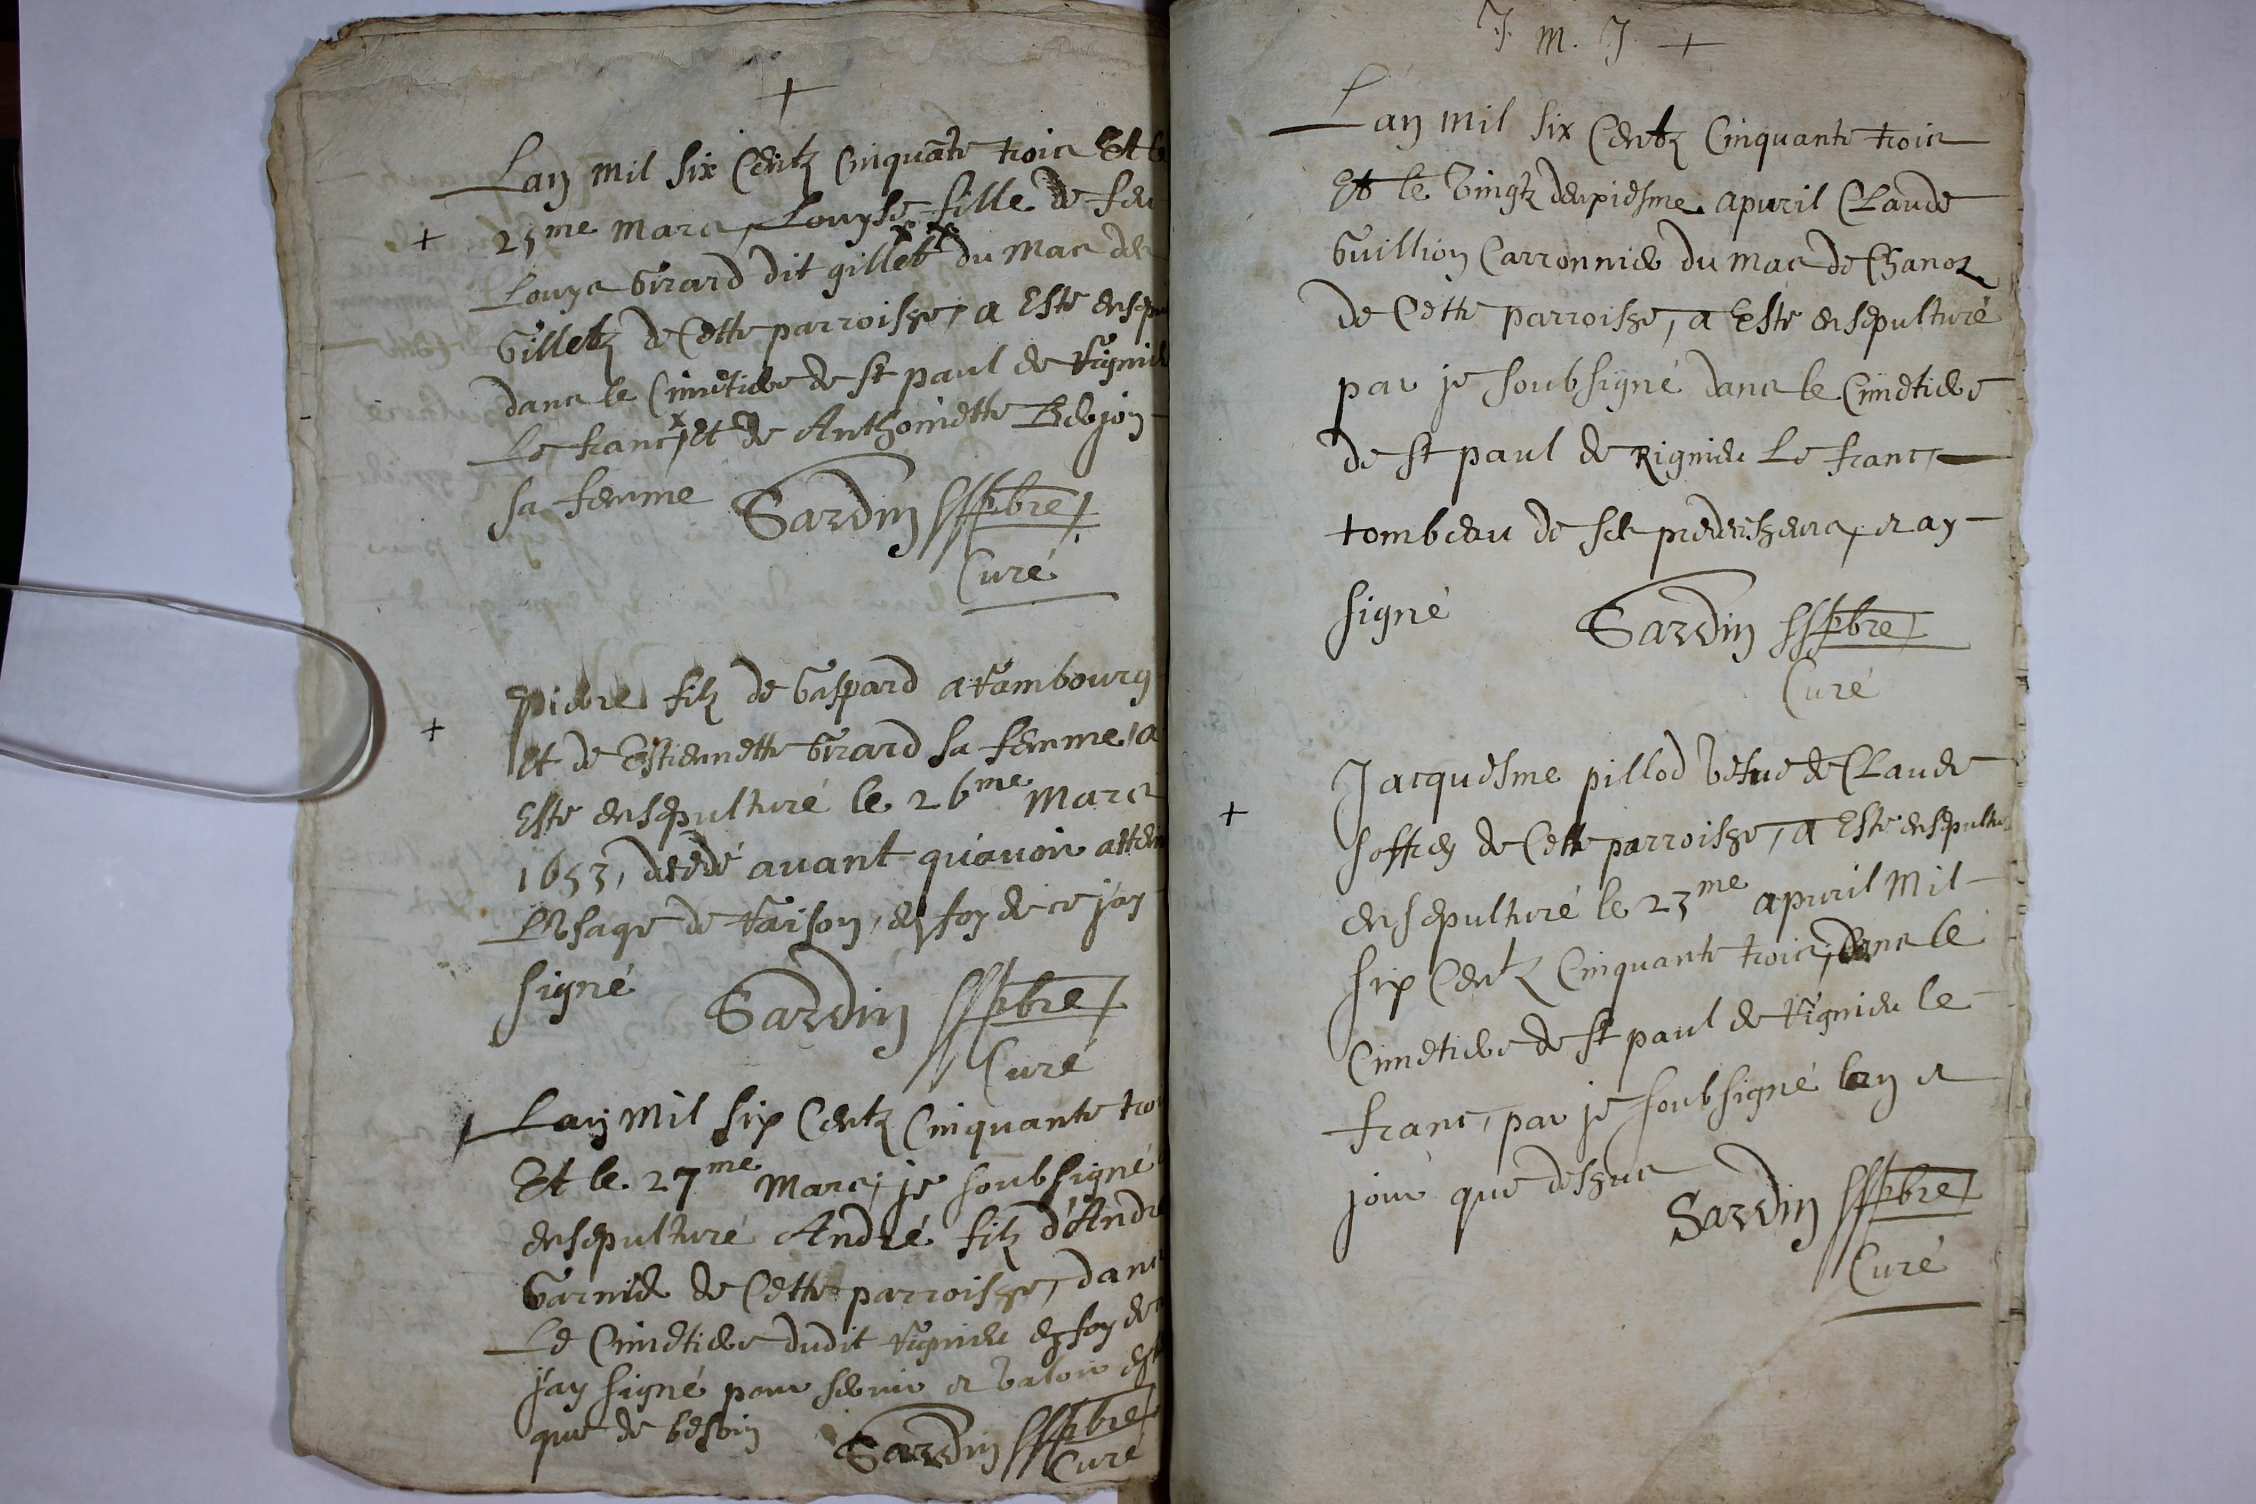 +
Lan mil six Centz Cinquante trois Et le
+ 25me mars, Louyse fille de feu
Louys Girard dit gillet du mas des
Gilletz de Cette parroisse, a Esté ensepu
dans le Cimetiere de st paul de Rignieu
Le franc, et de Anthoinette Berjon
sa femme Sardin pbre
Curé
+ pierre filz de Gaspard
et de Estiennette Girard sa femme, a
Esté ensepulturé le 26me Mars
1653, decedé auant qu'auoir atteint
L'Usage de Raison, en foy de ce j'ay
signé Sardin pbre
Curé
Lan Mil six Centz Cinquante tro
Et le 27me Mars, je soubsigné
ensepulturé André filz d'André
Garnier de Cette parroisse, dans
Le Cimetiere dudit Rignieu en foy de
j'ay signé pour seruir et Valoir
que de besoin Sardin pbre
Curé
J. m. J. +
Lan mil six Centz Cinquante trois
Et le Vingtz deuxiesme apuril Claude
Guillion Carronnier du mas de Chanoz
de Cette parroisse, a Esté ensepulturé
par je soubsigné dans le Cimetiere
de st paul de Rignieu Le franc,
tombeau de ses predecesseurs, et ay
signé Sardin pbre
Curé
+ Jacquesme pillod Vefue de Claude
de Cette parroisse, a Esté ensepultu
ensepulturé le 23me apuril Mil
six Centz Cinquante trois, dans le
Cimetiere de st paul de Rignieu le
franc, par je soubsigné lan et
jour que dessus Sardin pbre
Curé